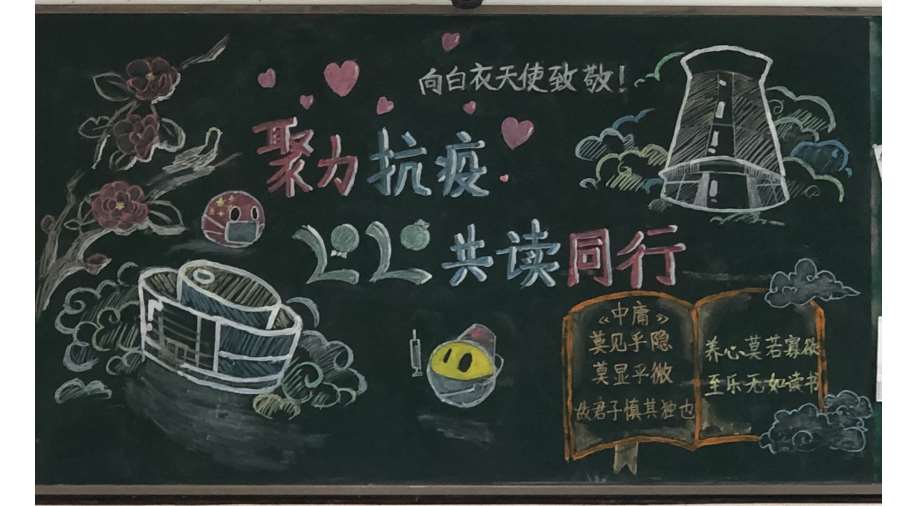 向白衣天使致敬！
聚力抗疫
2020共读同行
《中庸》
莫见乎隐
莫显乎微
故君子慎其独也
养心莫若寡欲
至乐无如读书